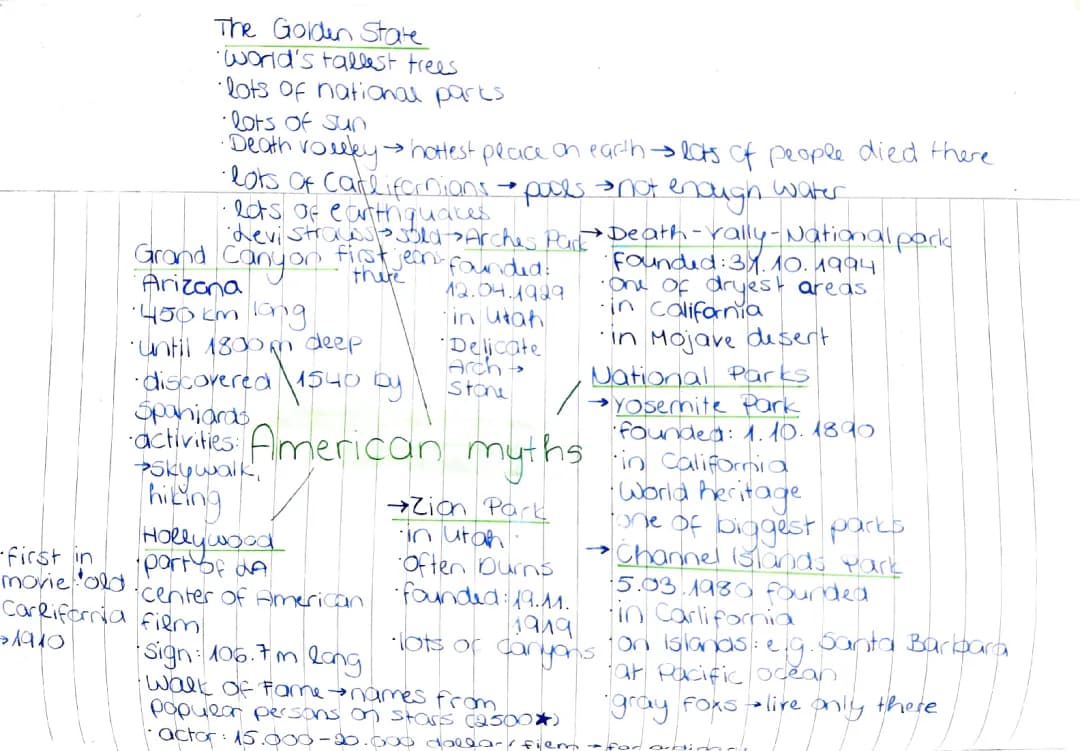 The Golden State
·World's tallest trees
·lots of national parks
·lots of sun
·Death valley → hottest place on earth → lots of people died there
·lots of Carlifornians → pools → not enough water
·lots of earthquakes
·Levi Strauss → sold first jeans there
Grand Canyon
Arizona
·450 km long
·until 1800 m deep
·discovered 1540 by
Spaniards
·activities:
→skywalk,
hiking
→Arches Park
founded:
12.04.1929
·in Utah
·Delicate
Arch →
Stone
→Death-vally-National park
·founded: 31.10.1994
·one of dryest areas
·in California
·in Mojave desert
American myths
National Parks
→Yosemite Park
·founded: 1.10.1890
·in California
·World heritage
·one of biggest parks
→Channel Islands Park
·5.03.1980 founded
·in Carlifornia
·on Islands: e.g. Santa Barbara
·at Pacific ocean
·gray foxs → live only there
→Zion Park
·in Utah
·often burns
·founded: 19.11.
1919
·lots of canyons
Hollywood
·part of LA
·center of American
film
·sign: 106.7 m long
·Walk of Fame → names from
popular persons on stars (2500★)
·actor: 15.000-20.000 dollar / film →
·first in
movie: old
Carlifornia
→1910